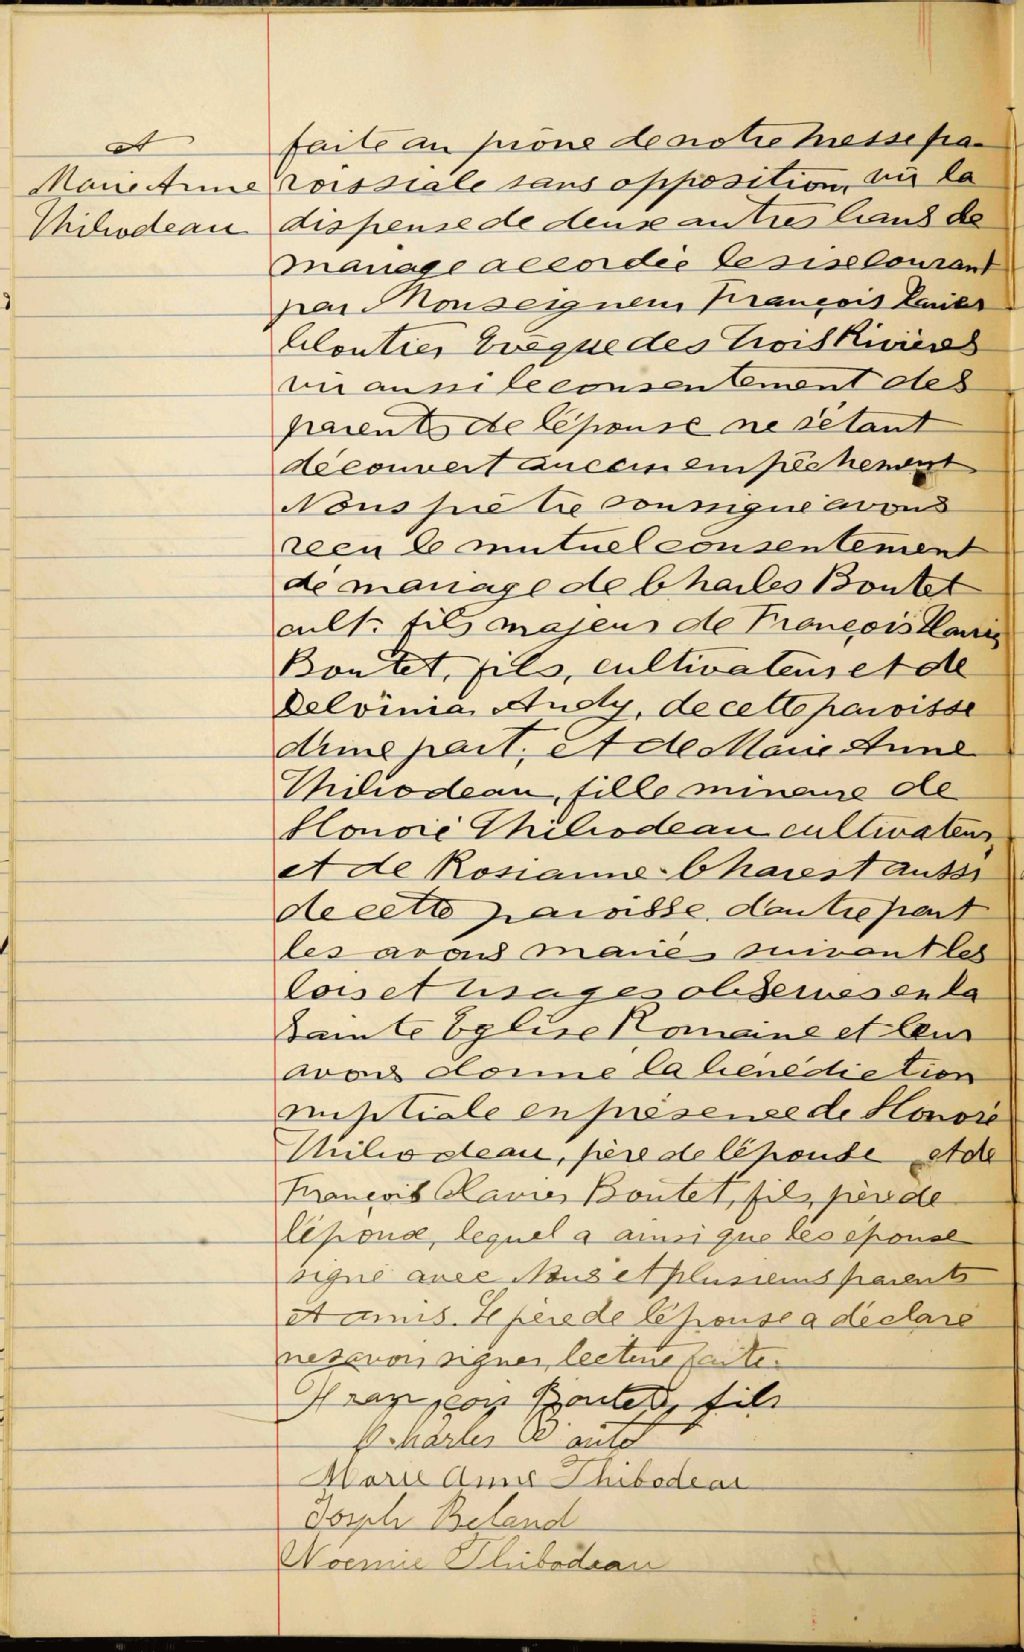 et
Marie Anne
Thibodeau
faite au prône de notre Messe pa-
roissiale sans opposition, vû la
dispense de deux autres bans de
mariage accordée le six courant
par Monseigneur François Xavier
Cloutier Evêque des Trois Rivières
vu aussi le consentement des
parents de l'épouse ne s'étant
découvert aucun empêchement
Nous prêtre soussigné avons
reçu le mutuel consentement
de mariage de Charles Boutet
cult. fils majeur de François Xavier
Boutet, fils, cultivateur et de
Delvinia Audy, de cette paroisse
d'une part; et de Marie Anne
Thibodeau, fille mineure de
Honoré Thibodeau cultivateur,
et de Rosianne Charest aussi
de cette paroisse d'autre part
les avons mariés suivant les
lois et usages observés en la
Sainte Eglise Romaine et leur
avons donné la bénédiction
nuptiale en présence de Honoré
Thibodeau, père de l'épouse et de
François Xavier Boutet, fils, père de
l'époux, lequel a ainsi que les époux
signé avec Nous et plusieurs parents
et amis. Le père de l'épouse a déclaré
ne savoir signer, lecture faite.
François Boutet, fils
Charles
Marie Anne Thibodeau
Joseph Beland
Noemie Thibodeau